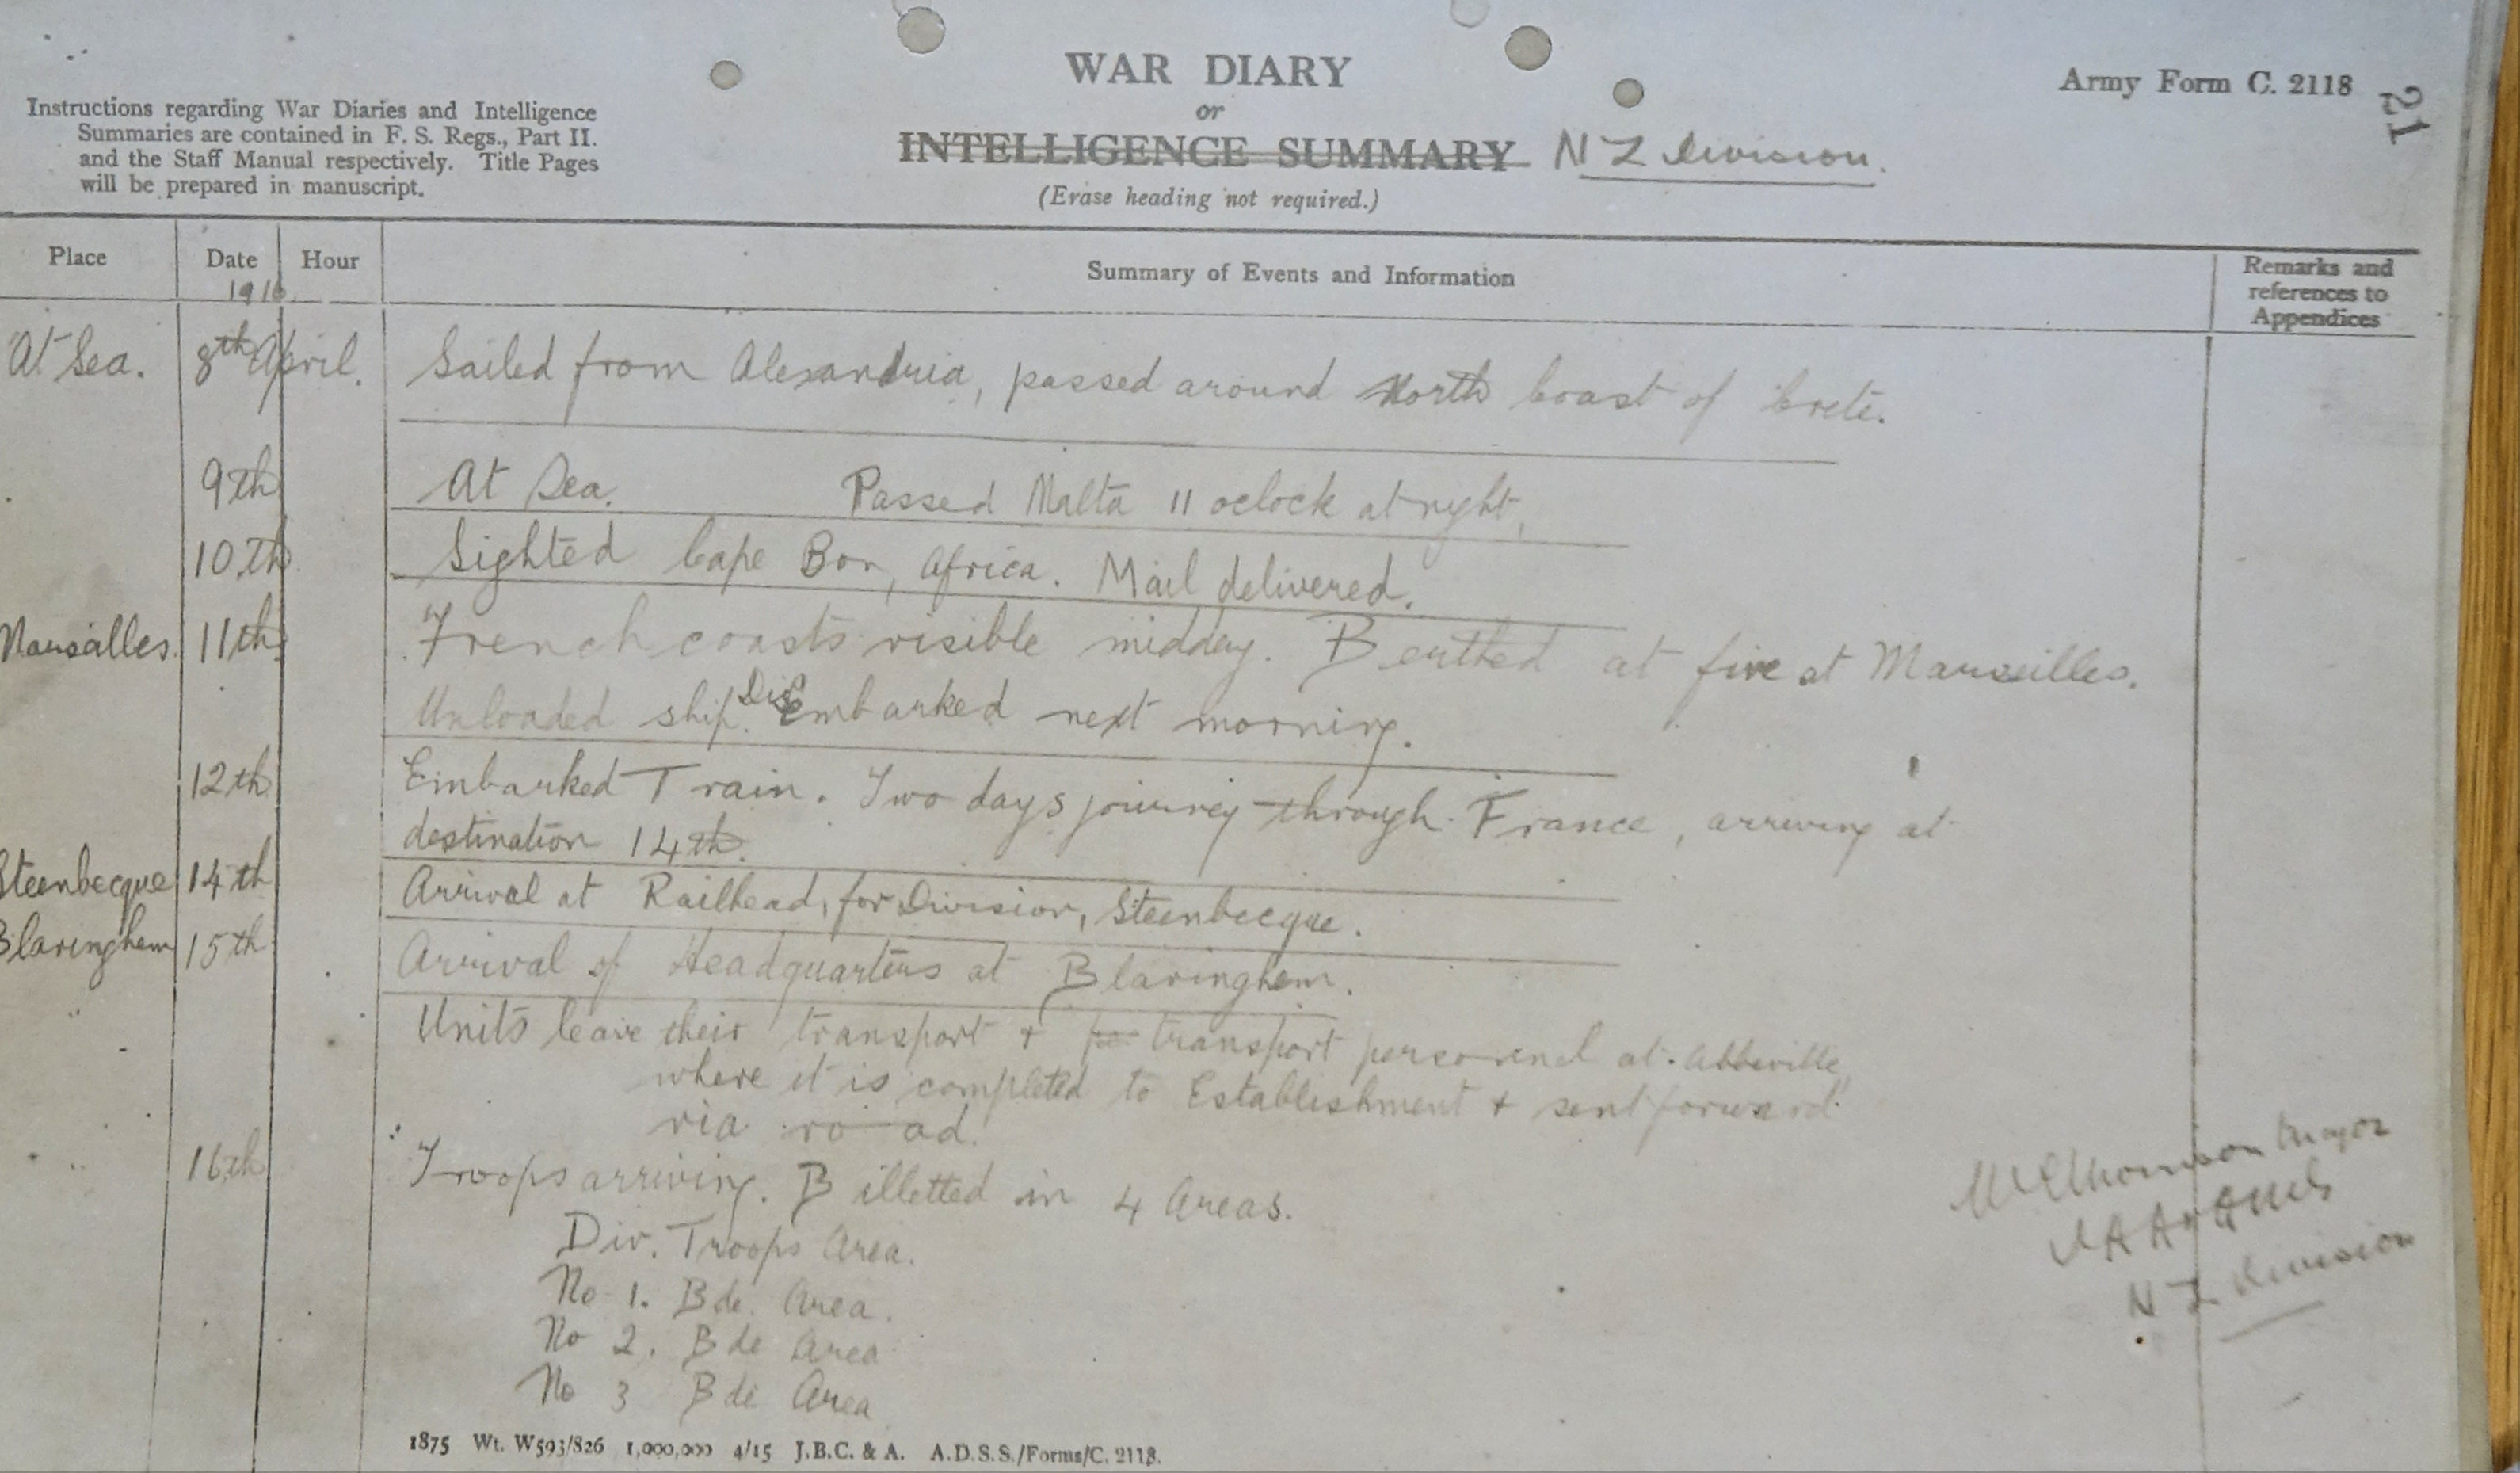 WAR DIARY
or
INTELLIGENCE SUMMARY N Z Division.
(Erase heading not required.)
Army Form C. 2118
21
Instructions regarding War Diaries and Intelligence
Summaries are contained in F. S. Regs., Part II.
and the Staff Manual respectively. Title Pages
will be prepared in manuscript.
Place Date Hour Summary of Events and Information Remarks and
references to
Appendices
1916.
At Sea. 8th April. Sailed from Alexandria, passed around North Coast of Crete.
9th At Sea. Passed Malta 11 oclock at night,
10th Sighted Cape Bon, Africa. Mail delivered.
Marsalles. 11th French coasts visible midday. Berthed at five at Marseilles.
Unloaded ship. Disembarked next morning.
12th Embarked Train. Two days journey through France, arriving at
destination 14th.
Steenbecque 14th Arrival at Railhead, for Division, Steenbecque.
Blaringhem 15th Arrival of Headquarters at Blaringhem.
" Units leave their transport + transport personnel at Abbeville,
where it is completed to Establishment + sent forward
via road.
" 16th Troops arriving. Billetted in 4 Areas.
Div. Troops Area.
No 1. Bde. Area.
No 2. Bde Area
No 3 Bde Area
Major
N Z Division
1875 Wt. W593/826 1,000,000 4/15 J.B.C. & A. A.D.S.S./Forms/C. 2118.